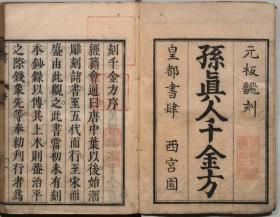 元板翻刻
孫真人千金方
皇都書肆　西宮園
刻千金方序
經籍會通曰唐中葉以後始漸
雕刻諸書至五代而行至宋而
盛由此觀之此書當初未有刻
本鈔錄以傳其上木則㫖治平
之際錢象先等奉勅刋行者為